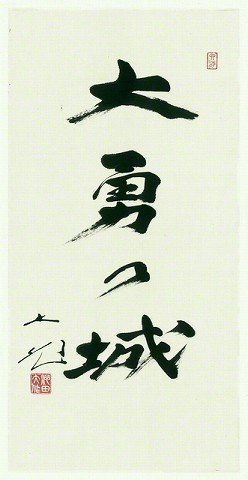 大勇の城
大作
池田
大作